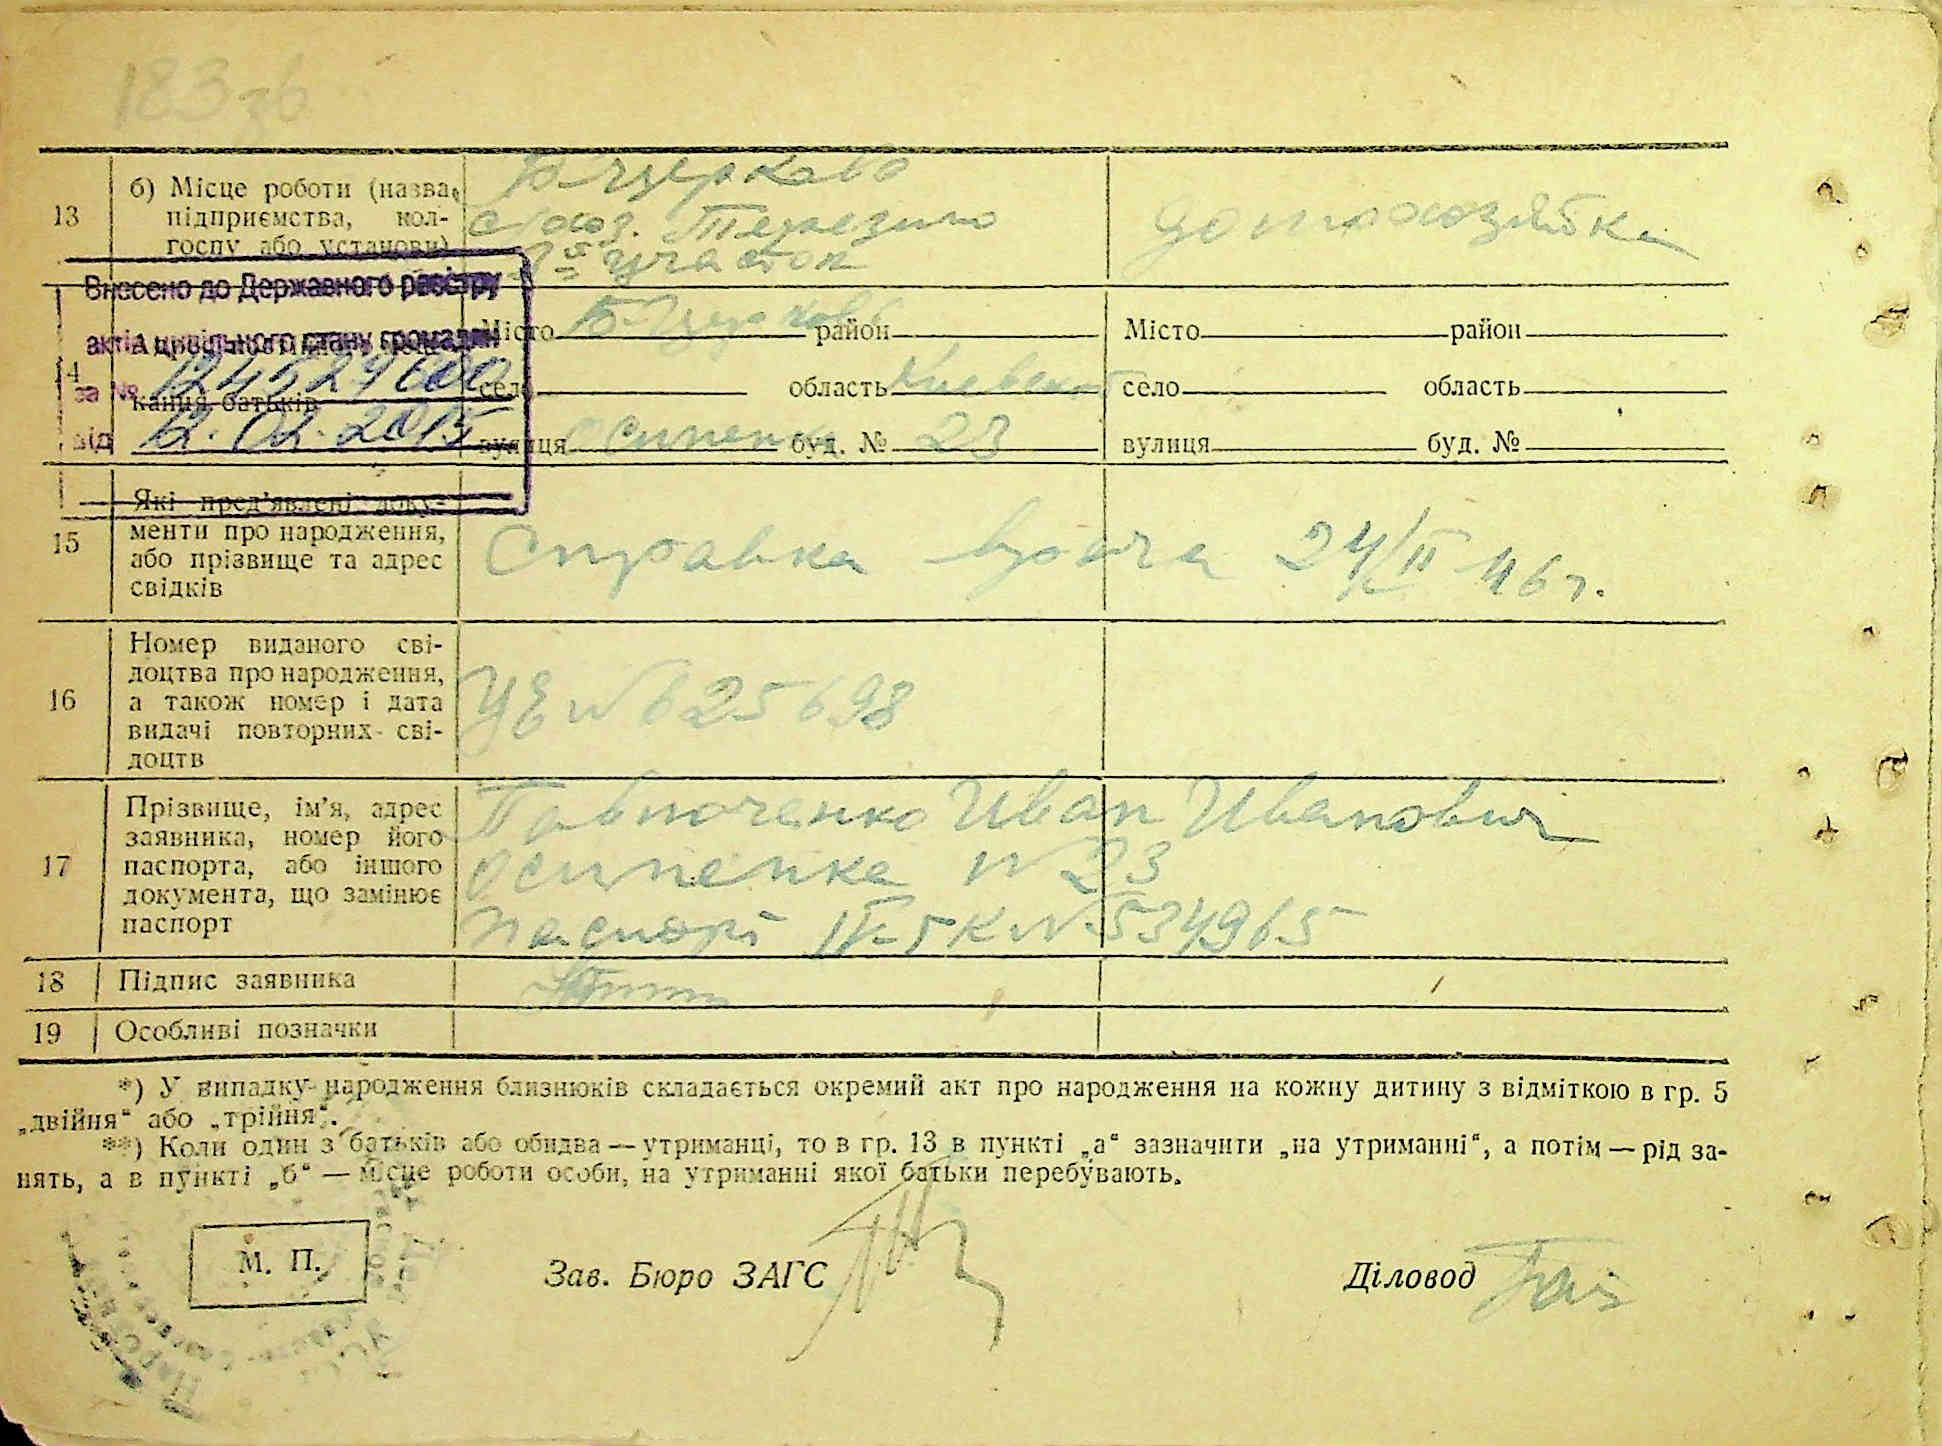 183зв
13
б) Місце роботи (назва
підприємства, кол-
госпу або установи)
Б-Церковь
союз. Терезино
участок
домохозяйка
Внесено до Державного реєстру
актів цивільного стану громадян
за №
від 12.02.2015
14
кання батьків
Місто Б-Церковь район
село область Киевская
вулиця Осипенко буд. № 23
Місто район
село область
вулиця буд. №
15
Які пред'явлені доку-
менти про народження,
або прізвище та адрес
свідків
Справка врача 24/II 46 г.
16
Номер виданого сві-
доцтва про народження,
а також номер і дата
видачі повторних сві-
доцтв
№ 625698
17
Прізвище, ім'я, адрес
заявника, номер його
паспорта, або іншого
документа, що замінює
паспорт
Иван Иванович
Осипенка № 23
Паспорт № 534965
18 Підпис заявника
19 Особливі позначки
*) У випадку народження близнюків складається окремий акт про народження на кожну дитину з відміткою в гр. 5
„двійня“ або „трійня“.
**) Коли один з батьків або обидва — утриманці, то в гр. 13 в пункті „а“ зазначити „на утриманні“, а потім — рід за-
нять, а в пункті „б“ — місце роботи особи, на утриманні якої батьки перебувають.
М. П.
Зав. Бюро ЗАГС
Діловод